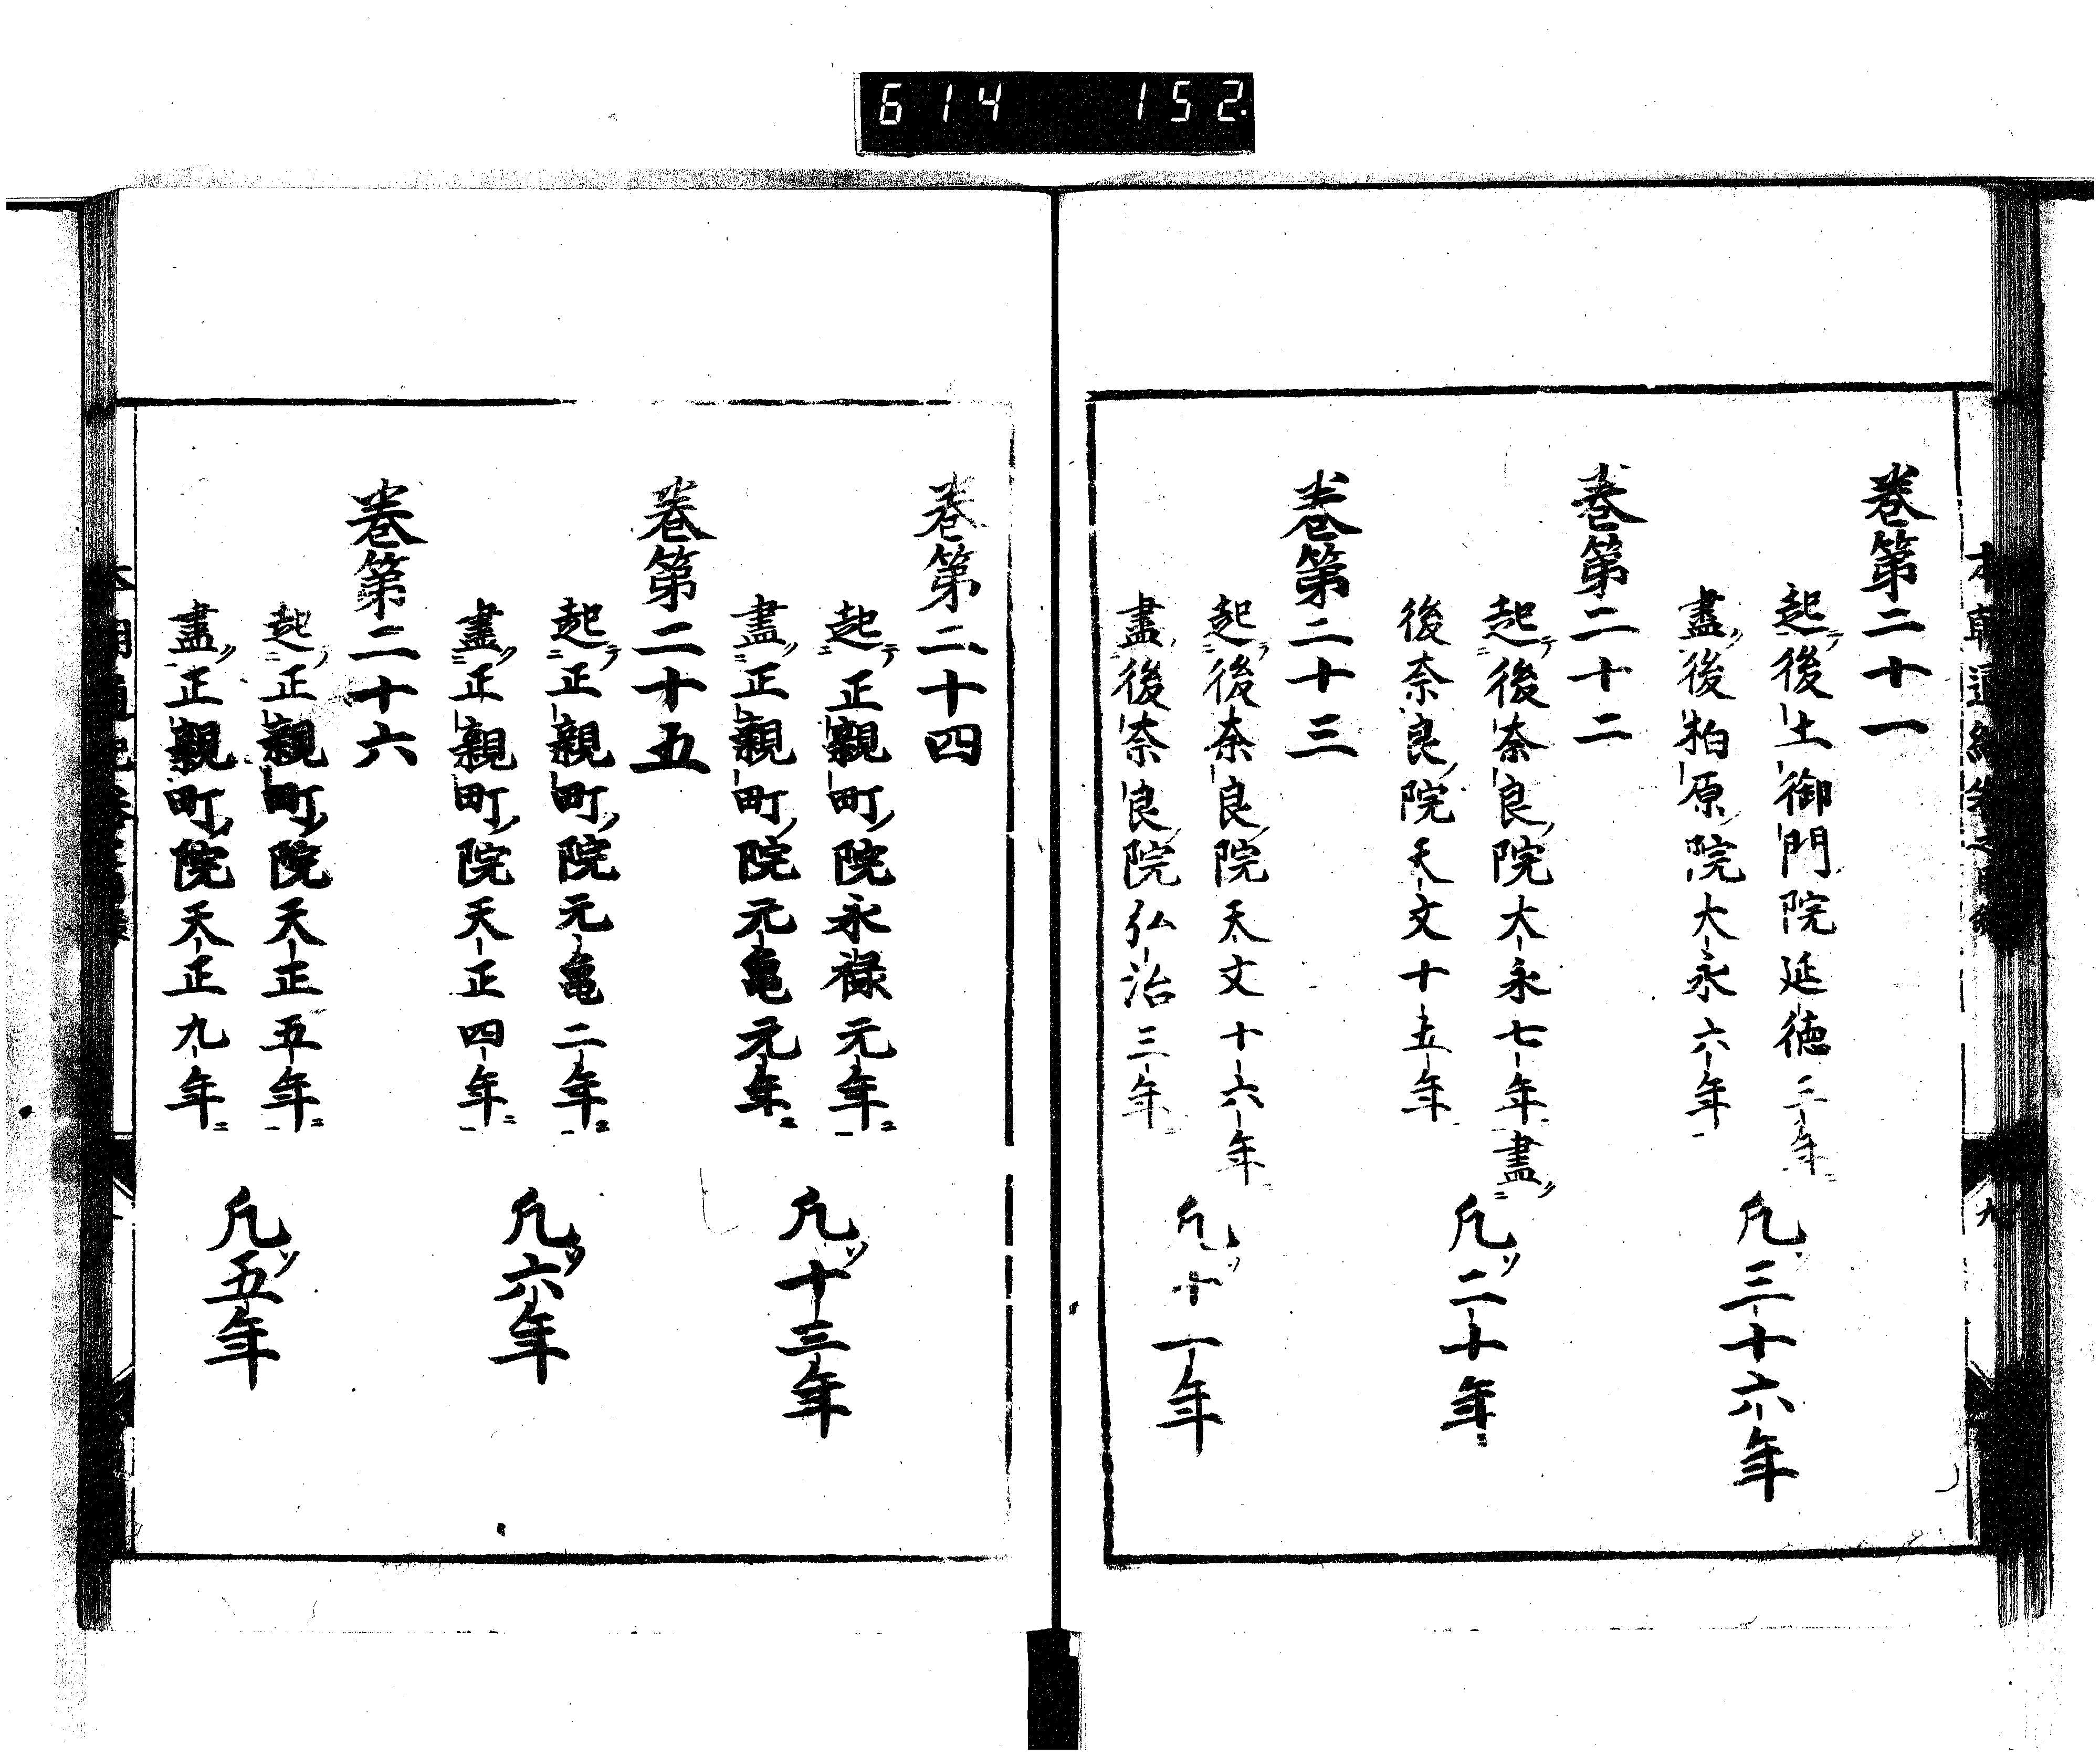 614 152
巻第二十一
起後土御門院延徳三年
盡後柏原院大永六年
凢三十六年
巻第二十二
起後奈良院大永七年盡
後奈良院天文十五年
凢二十年
巻第二十三
起後奈良院天文十六年
盡後奈良院弘治三年
凢十一年
巻第二十四
起正親町院永禄元年
盡正親町院元亀元年
凢十三年
巻第二十五
起正親町院元亀二年
盡正親町院天正四年
凢六年
巻第二十六
起正親町院天正五年
盡正親町院天正九年
凢五年